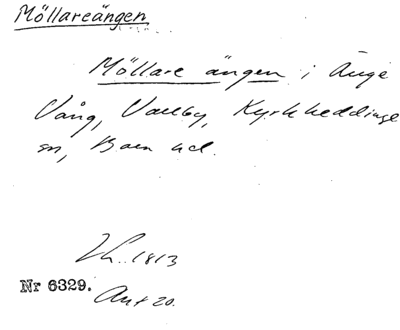 Möllareängen
Möllare ängen i Änge
Vång, Vallby, Kyrkheddinge
sn, Bara hd.
Lh. 1813
Nr 6329.
Ant 20.